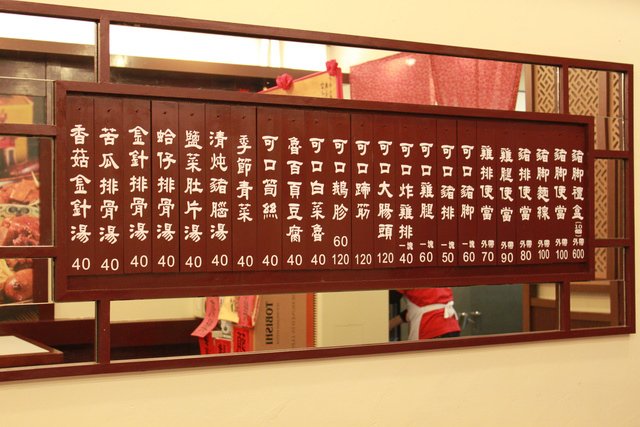 豬腳禮盒 外帶 600
豬腳便當 外帶 100
豬腳麵線 外帶 100
豬排便當 外帶 80
雞腿便當 外帶 90
雞排便當 外帶 70
可口豬腳 一塊 60
可口豬排 一塊 50
可口雞腿 一塊 60
可口炸雞排 一塊 40
可口大腸頭 120
可口蹄筋 120
可口鵝胗 60 120
可口白菜魯 40
魯百頁豆腐 40
可口筍絲 40
季節青菜 40
清炖豬腦湯 40
鹽菜肚片湯 40
蛤仔排骨湯 40
金針排骨湯 40
苦瓜排骨湯 40
香菇金針湯 40